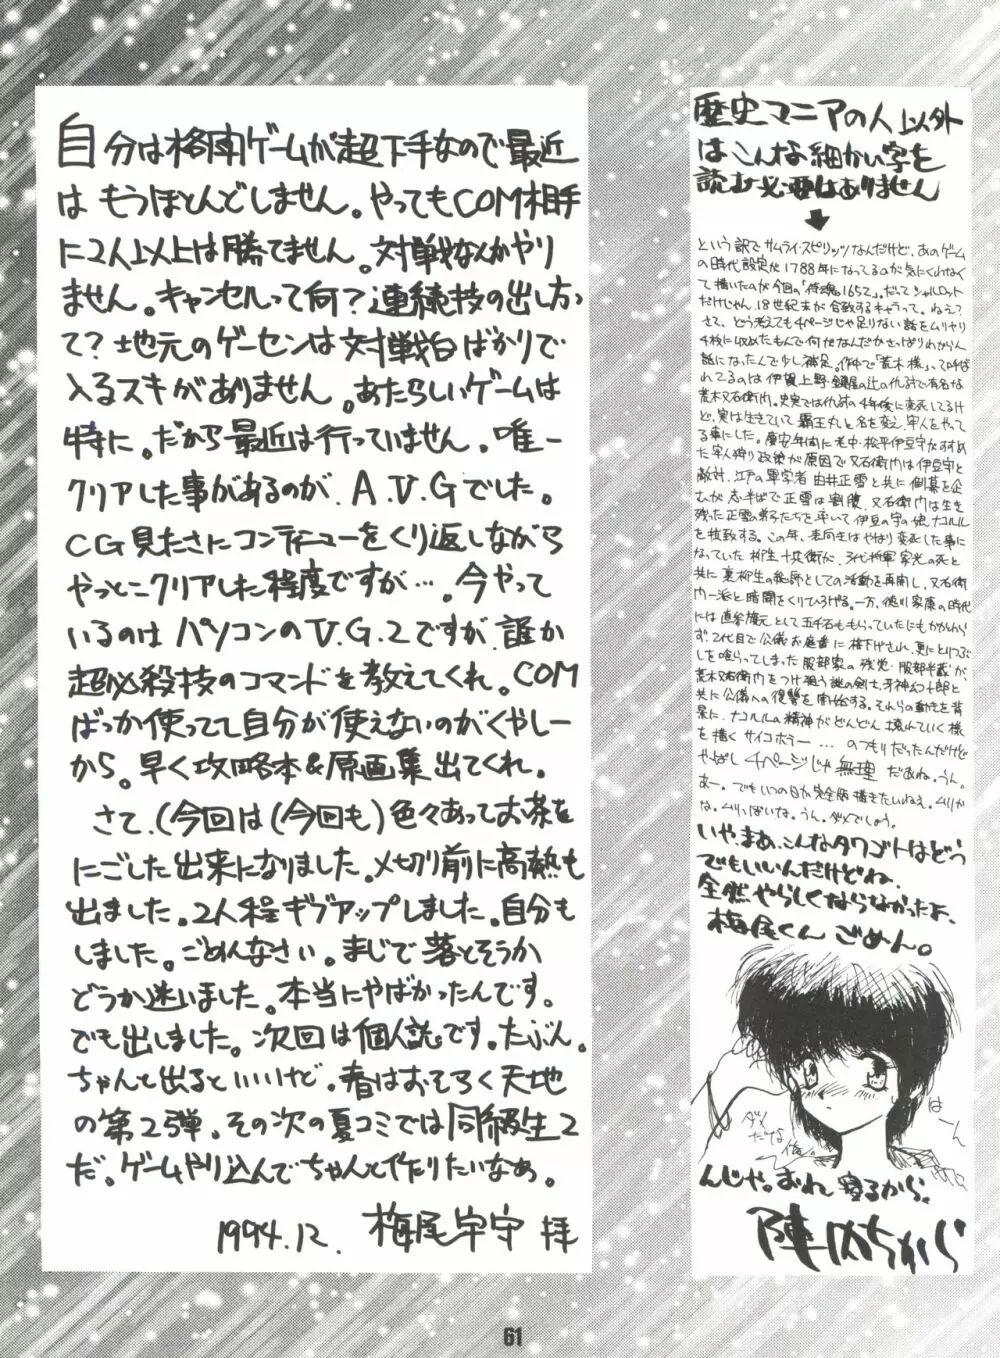 自分は格闘ゲームが超下手なので最近
はもうほとんどしません。やってもCOM相手
に2人以上は勝てません。対戦なんかやり
ません。キャンセルって何？連続技の出し方っ
て？地元のゲーセンは対戦台ばかりで
入るスキがありません。あたらしいゲームは
特に。だから最近は行っていません。唯一
クリアした事があるのが、A.V.Gでした。
CG見たさにコンティニューをくり返しながら
やっとこクリアした程度ですが…。今やって
いるのはパソコンのV.G.2ですが、誰か
超必殺技のコマンドを教えてくれ。COM
ばっか使ってて自分が使えないのがくやしー
から。早く攻略本&原画集出てくれ。
さて、(今回は(今回も)色々あってお茶を
にごした出来になりました。〆切り前に高熱も
出ました。2人程ギブアップしました。自分も
しました。ごめんなさい。まじで落とそうか
どうか迷いました。本当にやばかったんです。
でも出しました。次回は個人誌です。たぶん。
ちゃんと出るといいけど。春はおそらく天地
の第2弾。その次の夏コミでは同級生2
だ。ゲームやり込んでちゃんと作りたいなぁ。
1994.12. 梅尾字守 拝
歴史マニアの人以外
はこんな細かい字を
読む必要はありません
という訳でサムライ・スピリッツなんだけど、あのゲーム
の時代設定が1788年になってるのが気にくわなく
て描いたのが今回の「侍魂1652」。だってシャルロット
だけじゃん、18世紀末が合致するキャラって。ねえ？
さて、どう考えても4ページじゃ足りない話をムリヤリ
4枚に収めたもんで何せなんだかさっぱりわからん
話になったんで少し補足。作中で「荒木様」って呼ば
れてるのは伊賀上野・鍵屋の辻の仇討で有名な
荒木又右衛門。史実では仇討の4年後に変死してるけ
ど、実は生きていて覇王丸と名を変え、牢人をやって
る事にした。慶安年間に老中・松平伊豆守がすすめ
た牢人狩り政策が原因で又右衛門は伊豆守と
敵対、江戸の軍学者由井正雪と共に倒幕を企
むが志半ばで正雪は割腹、又右衛門は生き
残った正雪の弟子たちを率いて伊豆の守の娘、ナコルル
を拉致する。この年、表向きはやはり変死した事に
なっていた柳生十兵衛が、3代将軍家光の死と
共に裏柳生の総帥としての活動を再開し、又右衛
門一派と暗闘をくりひろげる。一方、徳川家康の時代
には直参旗元として五千石ももらっていたにもかかわら
ず、2代目で公儀お庭番に格下げされ、更にとりつぶ
しを喰らってしまった服部家の残党・服部半蔵が、
荒木又右衛門をつけ狙う謎の剣士、牙神幻十郎と
共に公儀への復讐を開始する。それらの動きを背
景に、ナコルルの精神がどんどん壊れていく様
を描くサイコホラー…のつもりだったんだけど
やっぱし4ページじゃ無理だあね。うん。
あー。でもいつの日か完全版描きたいねえ。ムリか
な。ムリっぽいな。うん。ダメでしょう。
いや、まあ、こんなタワゴトはどう
でもいいんだけどね、
全然やらしくならなかったよ、
梅尾くんごめん。
ダメ
だな
俺。
はーん
んじゃ。おれ寝るから。